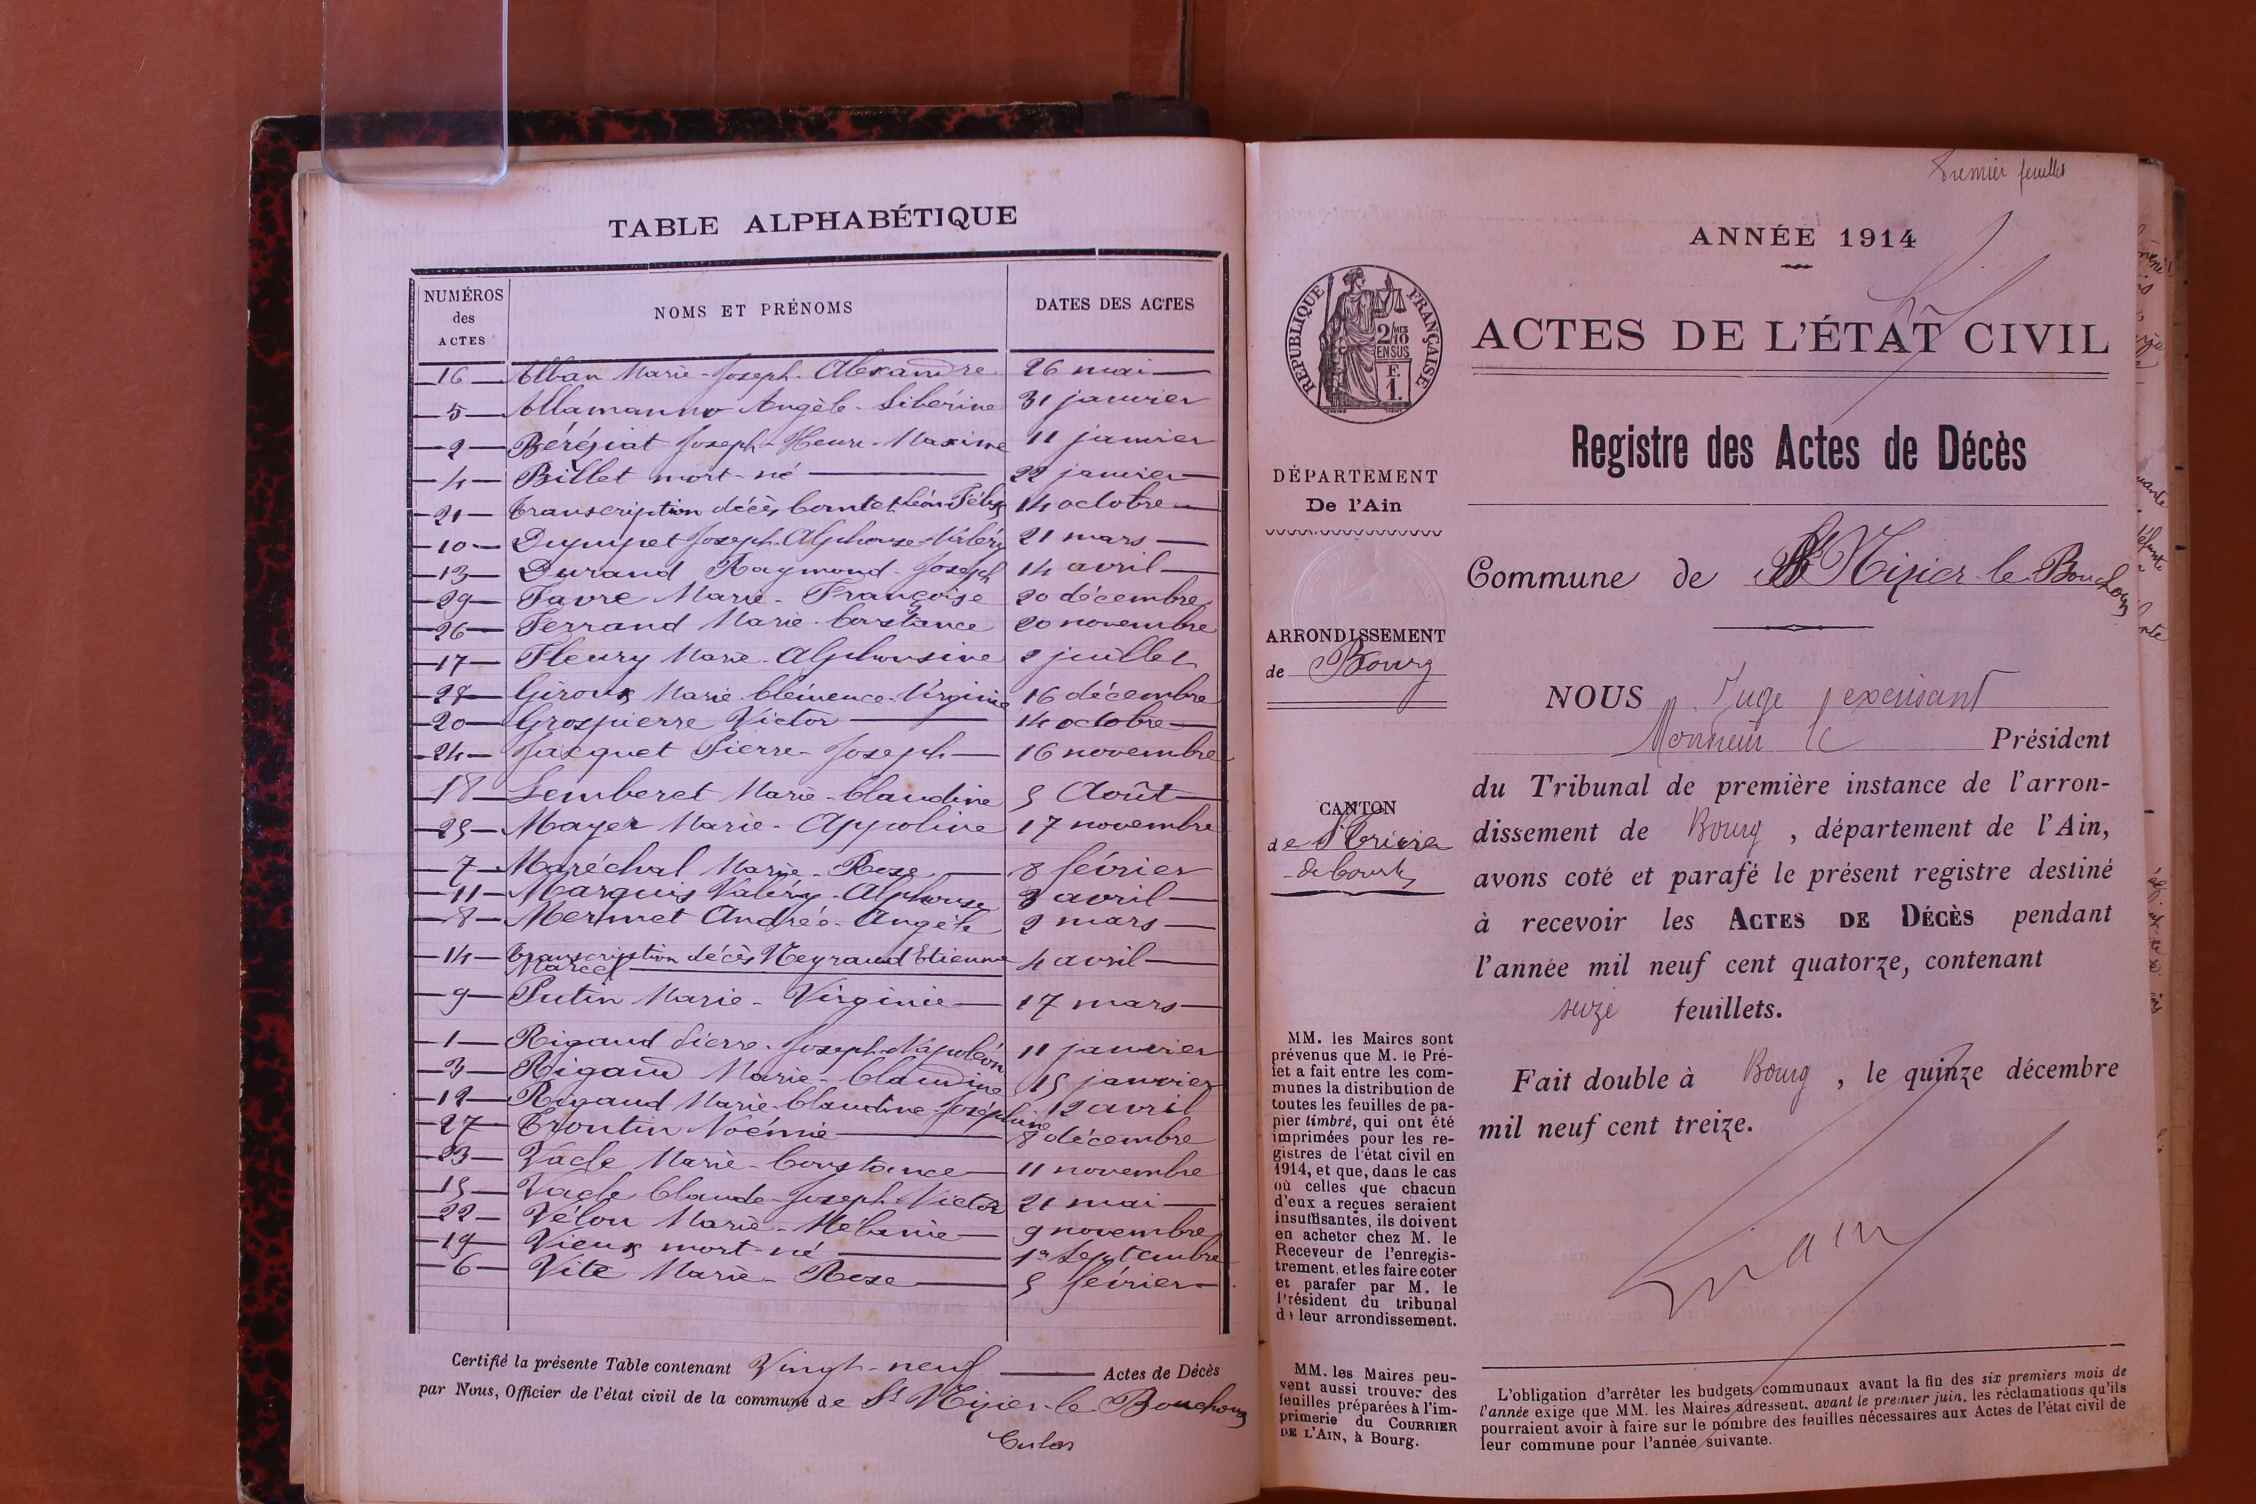 TABLE ALPHABÉTIQUE
NUMÉROS
des
ACTES
NOMS ET PRÉNOMS
DATES DES ACTES
16 Alban Marie-Joseph-Alexandre 26 mai
5 Allamanno Angèle-Libérine 31 janvier
2 Béréziat Joseph-Henri-Maxime 11 janvier
4 Billet mort-né 22 janvier
21 Transcription décès Comtet Léon Félix 14 octobre
10 Dupupet Joseph-Alphonse-Valéry 21 mars
13 Durand Raymond-Joseph 14 avril
29 Favre Marie-Françoise 20 décembre
26 Ferrand Marie-Constance 20 novembre
17 Fleury Marie-Alphonsine 2 juillet
28 Giroux Marie-Clémence-Virginie 16 décembre
20 Grospierre Victor 14 octobre
24 Jacquet Pierre-Joseph 16 novembre
18 Lemberet Marie-Claudine 5 Août
25 Mayer Marie-Appoline 17 novembre
7 Maréchal Marie-Rose 8 février
11 Marquis Valéry-Alphonse 3 avril
8 Mermet Andrée-Angèle 2 mars
14 Transcription décès Neyraud Etienne 4 avril
Marcel
9 Putin Marie-Virginie 17 mars
1 Rigaud Pierre-Joseph-Napoléon 11 janvier
3 Rigaud Marie-Claudine 15 janvier
12 Rigaud Marie-Claudine-Joséphine 12 avril
27 Troutin Noémie 8 décembre
23 Vacle Marie-Constance 11 novembre
15 Vacle Claude-Joseph-Victor 21 mai
22 Vélon Marie-Mélanie 9 novembre
19 Vieux mort-né 1er Septembre
6 Vite Marie-Rose 5 février
Certifié la présente Table contenant Vingt-neuf Actes de Décès
par Nous, Officier de l'état civil de la commune de St Nizier-le-Bouchoux
Premier feuillet
ANNÉE 1914
RÉPUBLIQUE FRANÇAISE
2/10
EN SUS
F.
1.
ACTES DE L'ÉTAT CIVIL
Registre des Actes de Décès
DÉPARTEMENT
De l'Ain
Commune de St Nizier-le-Bouchoux
ARRONDISSEMENT
de Bourg
CANTON
de St Trivier
de Courtes
NOUS Juge
Monsieur le Président
du Tribunal de première instance de l'arron-
dissement de Bourg, département de l'Ain,
avons coté et parafé le présent registre destiné
à recevoir les ACTES DE DÉCÈS pendant
l'année mil neuf cent quatorze, contenant
seize feuillets.
Fait double à Bourg, le quinze décembre
mil neuf cent treize.
MM. les Maires sont
prévenus que M. le Pré-
fet a fait entre les com-
munes la distribution de
toutes les feuilles de pa-
pier timbré, qui ont été
imprimées pour les re-
gistres de l'état civil en
1914, et que, dans le cas
où celles que chacun
d'eux a reçues seraient
insuffisantes, ils doivent
en acheter chez M. le
Receveur de l'enregis-
trement, et les faire coter
et parafer par M. le
Président du tribunal
de leur arrondissement.
MM. les Maires peu-
vent aussi trouver des
feuilles préparées à l'im-
primerie du COURRIER
DE L'AIN, à Bourg.
L'obligation d'arrêter les budgets communaux avant la fin des six premiers mois de
l'année exige que MM. les Maires adressent, avant le premier juin, les réclamations qu'ils
pourraient avoir à faire sur le nombre des feuilles nécessaires aux Actes de l'état civil de
leur commune pour l'année suivante.